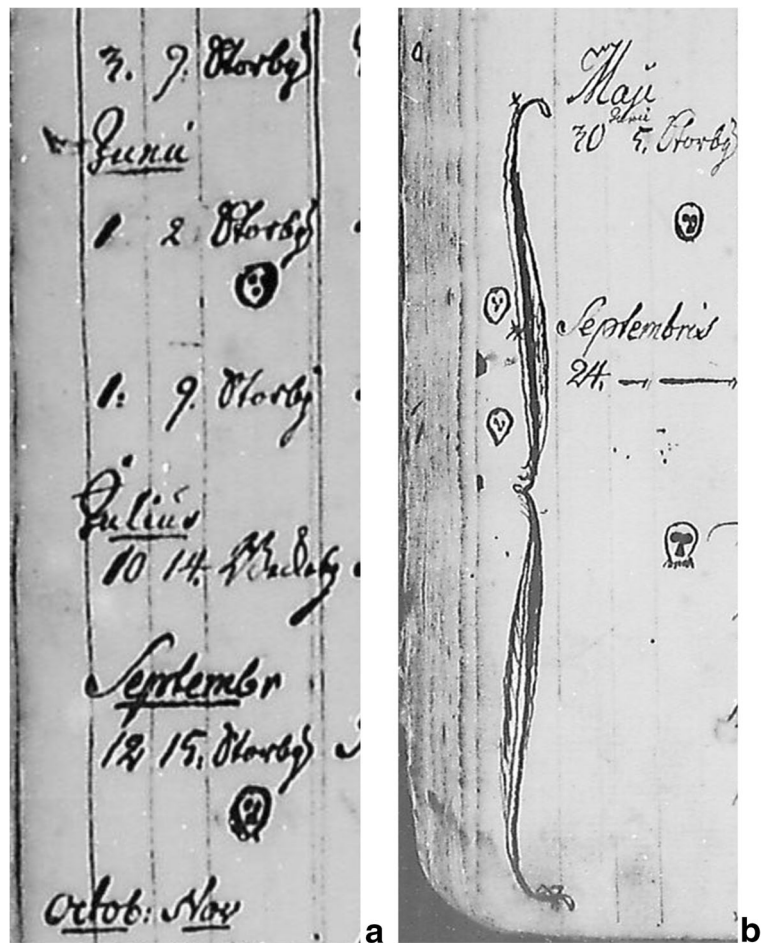 3. 9. Storby
Junii
1 2 Storby
1. 9. Storby
Julius
10 14.
Septembr
12 15. Storby
octob: Nov
a
Maji
Junii
30 5. Storby
Septembris
24.
b